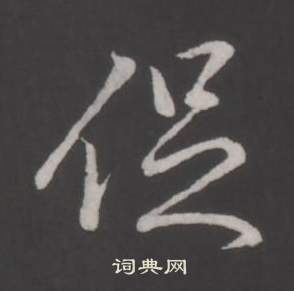 促
词典网